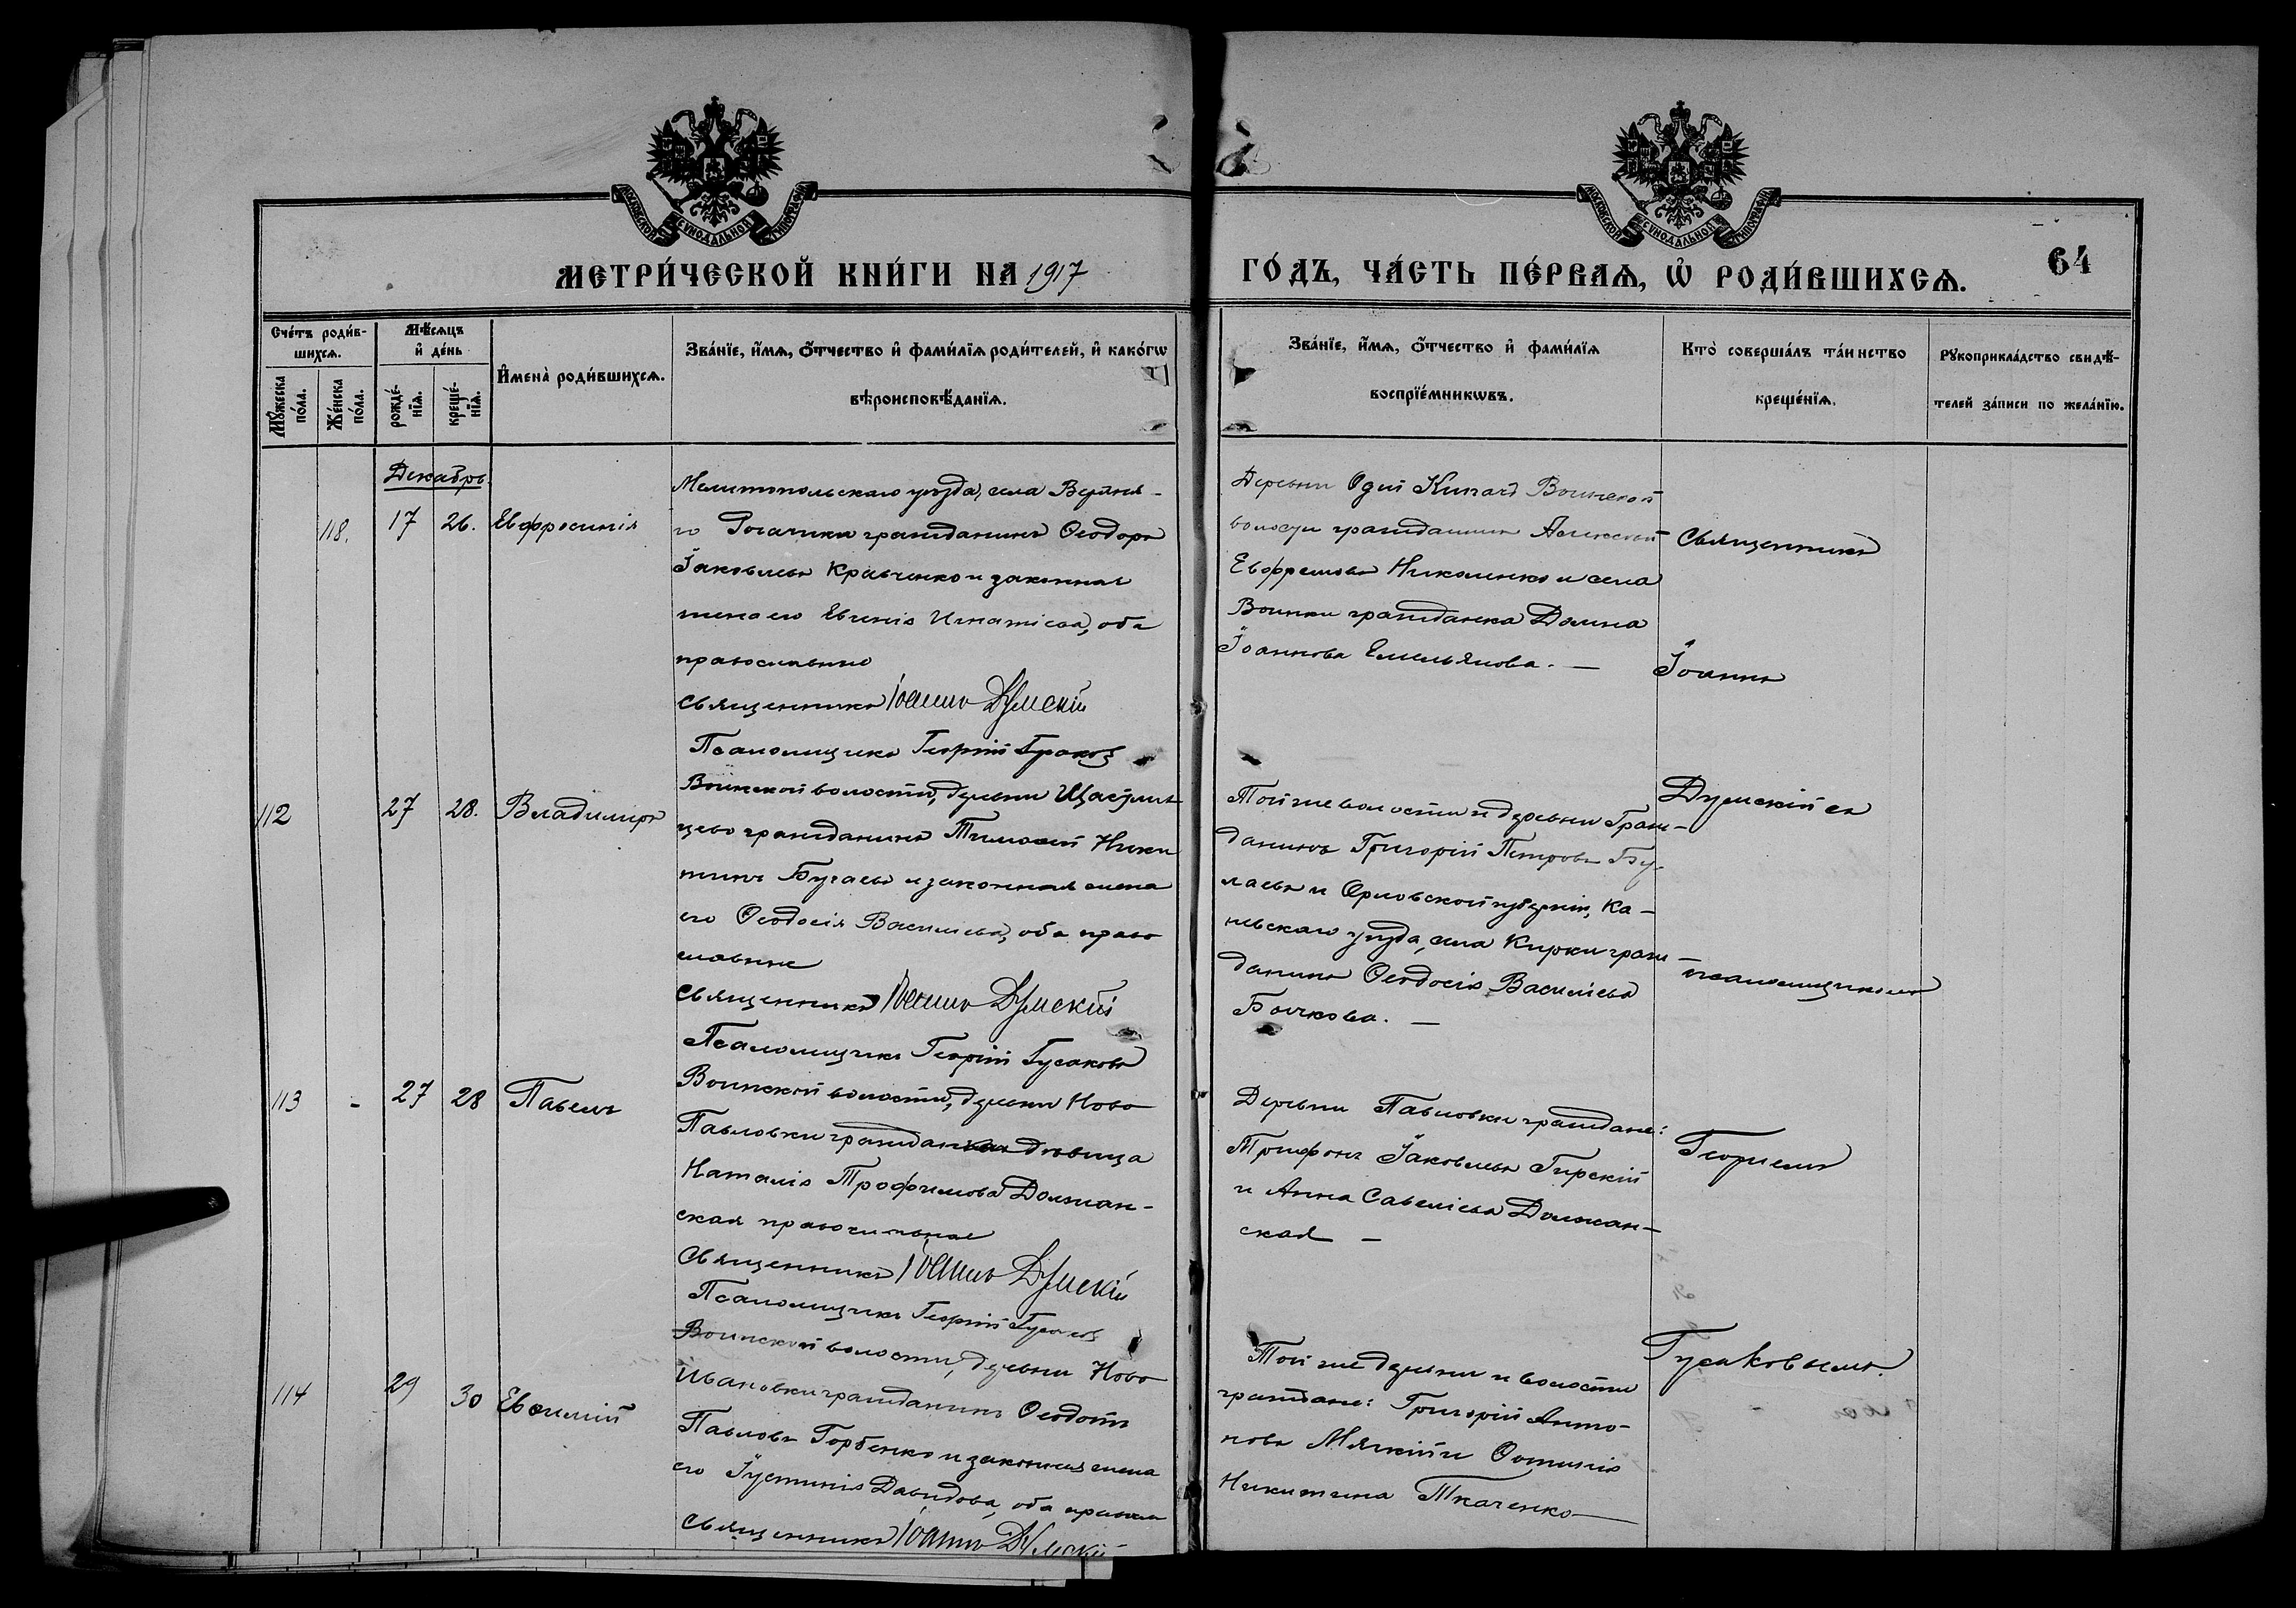 МОСКОВСКОЙ СѴНОДАЛЬНОЙ ТИПОГРАФІИ
МОСКОВСКОЙ СѴНОДАЛЬНОЙ ТИПОГРАФІИ
МЕТРИ́ЧЕСКОЙ КНИ́ГИ НА 1917
ГО́ДЪ, ЧА́СТЬ ПЕ́РВАѦ, Ѡ РОДИ́ВШИХСѦ.
64
Сче́тъ роди́в-
шихсѧ.
Мꙋ́жеска
по́ла.
Же́нска
по́ла.
Мѣ́сѧцъ
и де́нь
рожде́-
нїѧ.
креще́-
нїѧ.
Имена̀ роди́вшихсѧ.
Зва́нїе, и́мѧ, ѻ́тчество и фами́лїѧ роди́телей, и како́гѡ
вѣроисповѣ́данїѧ.
Зва́нїе, и́мѧ, ѻ́тчество и фами́лїѧ
воспрїе́мникѡвъ.
Кто̀ соверша́лъ та́инство
креще́нїѧ.
Рꙋкоприкла́дство свидѣ́-
телей за́писи по жела́нїю.
Декабрь
118.
17
26.
Евфросинія
Мелитопольскаго уѣзда, села Верхня-
го Рогачика гражданинъ Ѳеодоръ
Іаковлевъ Кравченко и законная
жена его Евгенія Игнатіева, оба
православные
Священникъ Іоаннъ Думскій
Псаломщикъ Георгій Гусаковъ
Деревни Воинской
волости гражданинъ Алексѣй
Евфремовъ Николенко и села
Воинки гражданка Домна
Іоаннова Емельянова. —
Священникъ
Іоаннъ
Думскій съ
псаломщикомъ
Георгіемъ
Гусаковымъ.
112
27
28.
Владимиръ
Воинской волости, деревни
цево гражданинъ Тимоѳей Ники
тинъ и законная жена
его Ѳеодосія Василіева, оба право
славные
Священникъ Іоаннъ Думскій
Псаломщикъ Георгій Гусаковъ
Той же волости и деревни Граж-
данинъ Григорій Петровъ Бу-
лаевъ и Орловской губерніи, Ка-
невскаго уѣзда, села Кирки граж-
данинъ Ѳеодосія Василіева
Бочкова. —
113
-
27
28
Павелъ
Воинской волости, деревни Ново
Павловки гражданка дѣвица
Наталія Трофимова Должан-
ская православная
Священникъ Іоаннъ Думскій
Псаломщикъ Георгій Гусаковъ
Деревни Павловки граждане:
Трифонъ Іаковлевъ Гирскій
и Анна Савеліева Должан-
ская —
114
29
30
Евѳимій
Воинской волости, деревни Ново
Ивановки гражданинъ Ѳеодотъ
Павловъ Горбенко и законная жена
его Іустинія Давидова, оба правосл
Священникъ Іоаннъ Думскій
Той же деревни и волости
граждане: Григорій Анто-
новъ Мягкій и Фотинія
Никитина Ткаченко —